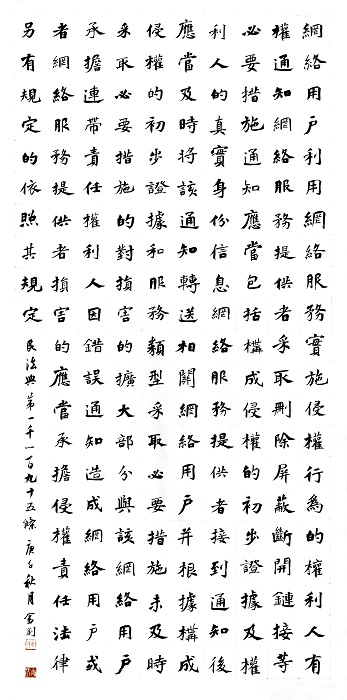 網絡用戶利用網絡服務實施侵權行為的權利人有
權通知網絡服務提供者采取刪除屏蔽斷開鏈接等
必要措施通知應當包括構成侵權的初步證據及權
利人的真實身份信息網絡服務提供者接到通知後
應當及時將該通知轉送相關網絡用戶并根據構成
侵權的初步證據和服務類型采取必要措施未及時
采取必要措施的對損害的擴大部分與該網絡用戶
承擔連帶責任權利人因錯誤通知造成網絡用戶或
者網絡服務提供者損害的應當承擔侵權責任法律
另有規定的依照其規定 民法典第一千一百九十五條 庚子秋月